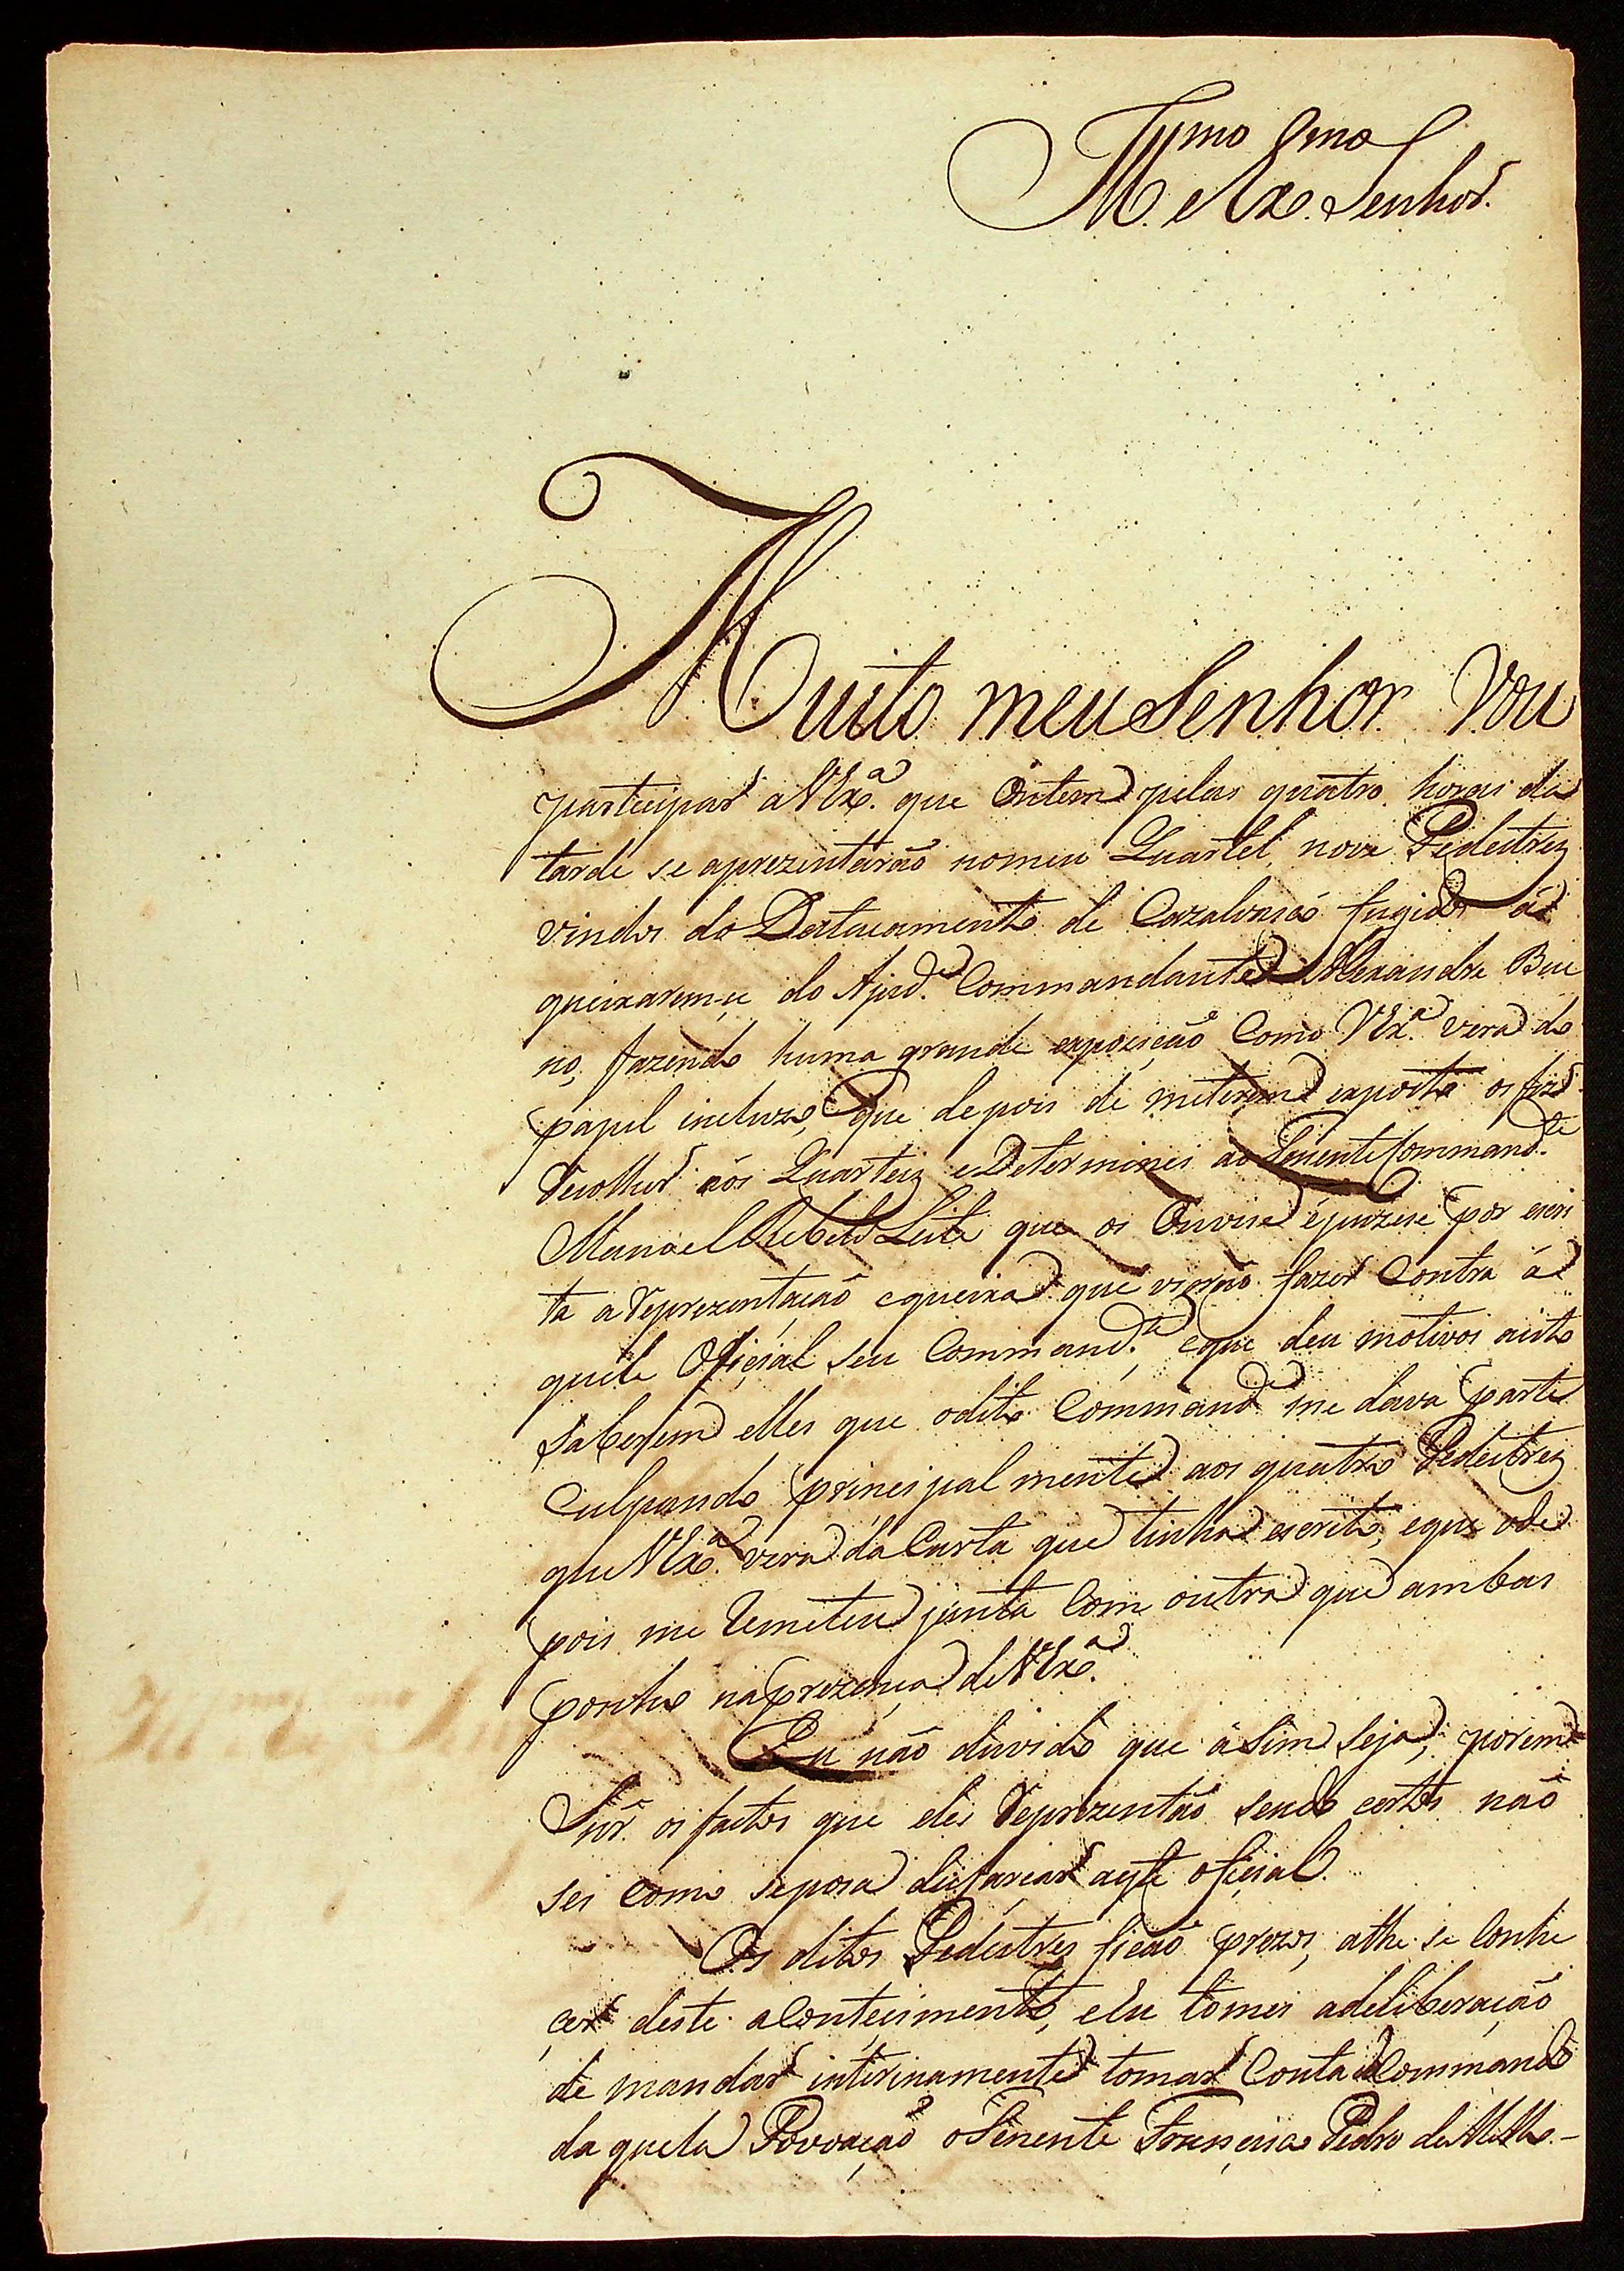 Ill.mo e Ex.mo Senhor.
Muito meu Senhor Vou
participar a VEx.ª que Ontem pelas quatro horas da
tarde se aprezentárão nomeu Quartel nove Pedestrez
vindos do Destacamento de Cazalvasco fugidos á
queixarem-se do Ajud.e Commandante Alexandre Bue
no, fazendo huma grande expozição Como VEx.ª verá do
papel incluzo, que depois de meterem exposto os fiz
recolher aós Quarteiz e Determinei ao Tenente Command.te
Manoel Rebelo Leite que os Ouvise épuzese por escri
ta a reprezentação equeixa que vierão fazer Contra á
quele Oficial seu Command.te, eque deu motivos aisto
saberem elles que odito Command.e me dava parte
Culpando principalmente aos quatro Pedestrez
que VEx.ª verá da Carta que tinha escrito, eque ode
pois me remeteu junta Com outra que ambas
ponho naprezença de VEx.ª
Eu não duvido que aSim seja, porem
Snr. os factos que eles reprezentão sendo certos não
sei como seposa disfarçar aeste oficial.
Os ditos Pedestres ficão prezos, athe se Conhe
çer deste aContecimento, eEu tomei adeliberação
de mandar interinamente tomar Conta do Commando
da quela Povoação oTenente Francisco Pedro de Mello.-